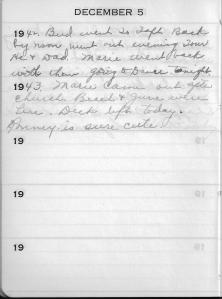 DECEMBER 5
1942. Bud went to Taft. Back
by noon, went out evening
He & Dad. Marie went back
with them going to Dance tonight
1943. Marie came out after
church. & June were
here. Dick left today.
is sure cute!
19
19
19